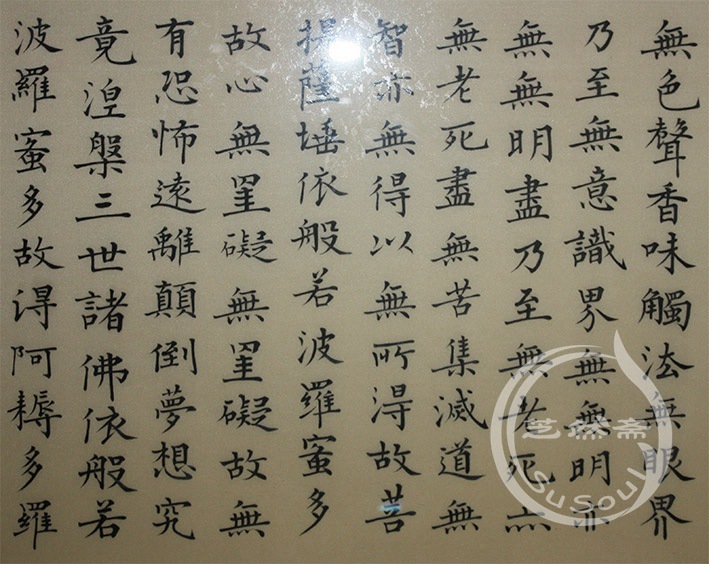 無色聲香味觸法無眼界
乃至無意識界無無明亦
無無明盡乃至無老死亦
無老死盡無苦集滅道無
智亦無得以無所得故菩
提薩埵依般若波羅蜜多
故心無罣礙無罣礙故無
有恐怖遠離顛倒夢想究
竟涅槃三世諸佛依般若
波羅蜜多故得阿耨多羅
SuSoul